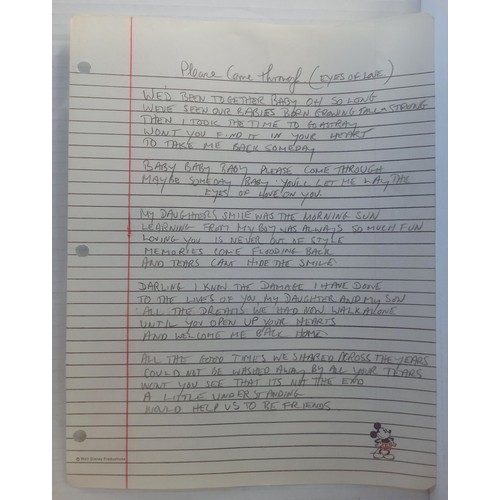 Please Come Through (EYES OF LOVE)
WE'D BEEN TOGETHER BABY OH SO LONG
WE'VE SEEN OUR BABIES BORN GROWING TALL & STRONG
THEN I TOOK THE TIME TO GO ASTRAY
WON'T YOU FIND IT IN YOUR HEART
TO TAKE ME BACK SOMEDAY
BABY BABY BABY PLEASE COME THROUGH
MAYBE SOMEDAY BABY YOU'LL LET ME LAY THE
EYES OF LOVE ON YOU.
MY DAUGHTERS SMILE WAS THE MORNING SUN
LEARNING FROM MY BOY WAS ALWAYS SO MUCH FUN
LOVING YOU IS NEVER OUT OF STYLE
MEMORIES COME FLOODING BACK
AND TEARS CANT HIDE THE SMILE
DARLING I KNOW THE DAMAGE I HAVE DONE
TO THE LIVES OF YOU, MY DAUGHTER AND MY SON
ALL THE DREAMS WE HAD NOW WALK ALONE
UNTIL YOU OPEN UP YOUR HEARTS
AND WELCOME ME BACK HOME
ALL THE GOOD TIMES WE SHARED ACROSS THE YEARS
COULD NOT BE WASHED AWAY BY ALL YOUR TEARS
WONT YOU SEE THAT ITS NOT THE END
A LITTLE UNDERSTANDING
WOULD HELP US TO BE FRIENDS
© Walt Disney Productions